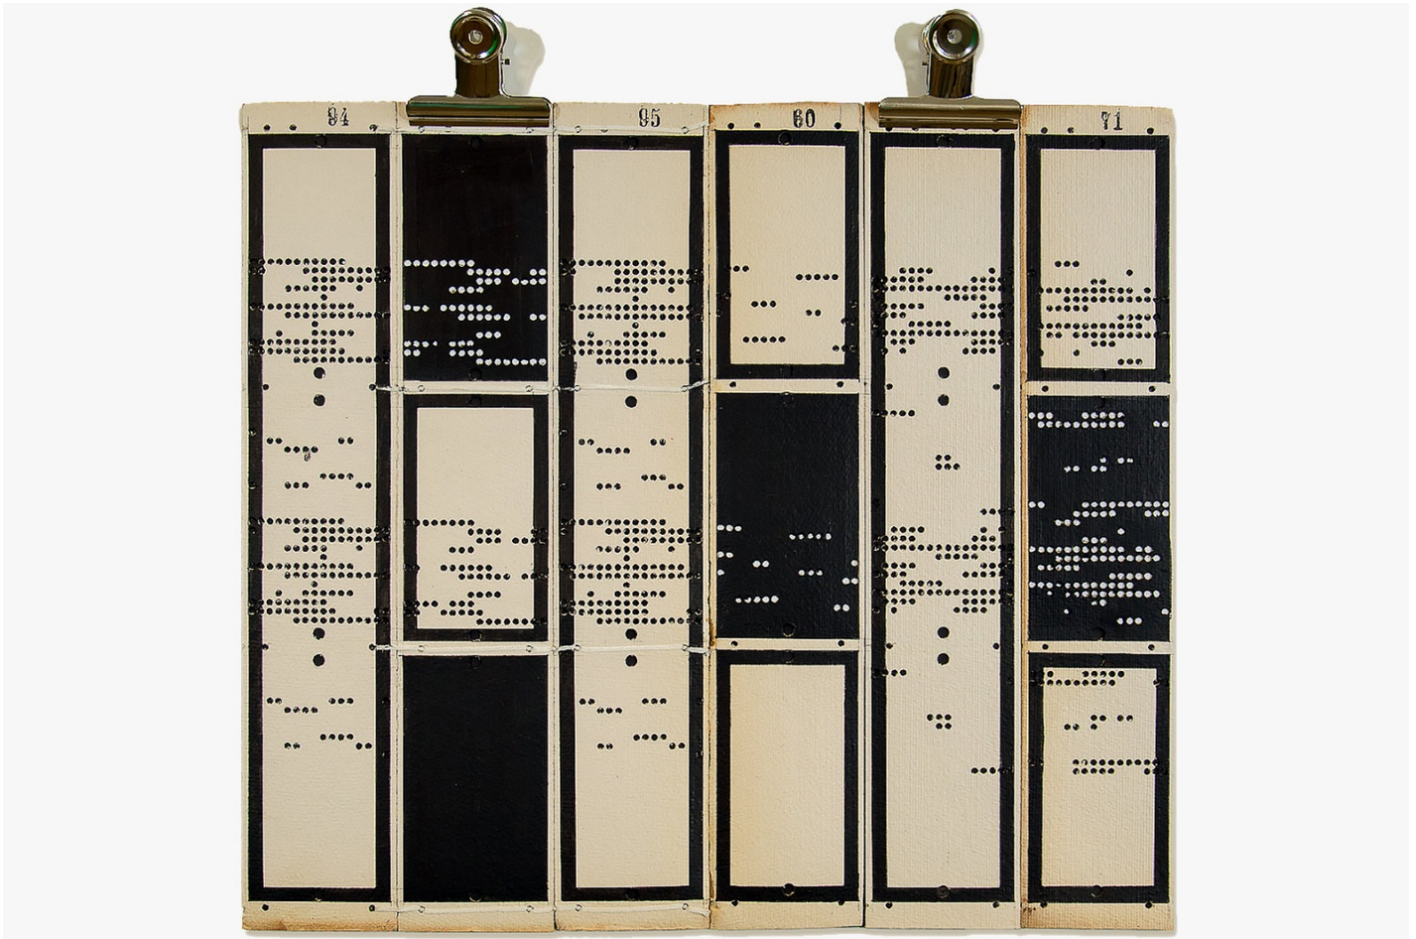 94 95 60 71